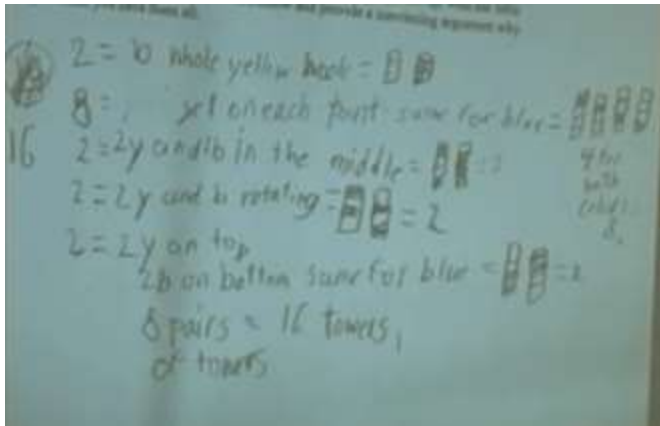 have them all.
and provide a convincing argument why
2 = b whole yellow
8 = 1 yel on each same for blue =
16
2 = 2y and b in the middle =
4 for
both
colors
8
2 = 2y and b rotating = = 2
2 = 2y on top
2b on bottom same for blue = = 2
8 pairs = 16 towers
of towers